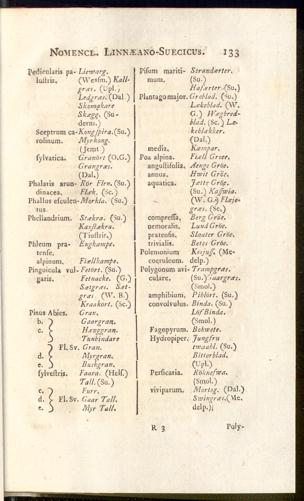 NOMENCL. LINNÆANO-SUECICUS. 133
Pedicularis pa- Lienorg.
lustris. (Wersm.) Kall-
græs. (Upl.)
Ledgræs. (Dal.)
Skomakare
Skægg. (Su-
derm.)
Sceptrum ca- Kongspira. (Su.)
rolinum. Myrkong.
(Jemt.)
sylvatica. Granört (O.G.)
Grangræs.
(Dal.)
Phalaris arun- Rör Flen. (Su.)
dinacea. Flæk. (Sc.)
Phallus esculen- Morkla. (Su.)
tus.
Phellandrium. Stækra. (Su.)
Phleum pra- Engkampe.
tense.
alpinum. Fiællkampe.
Pinguicula vul- Fetört. (Su.)
garis. Fetnacke. (G.)
Sætgræs. Sæt-
græs (W. B.)
Kraakört. (Sc.)
Pinus Abies. Gran.
b. Gaorgran.
c. Hænggran.
Tunbindare
Fl. Sv. Gran.
d. Myrgran.
e. Buskgran.
sylvestris. Faora. (Hels.)
Tall. (Su.)
c. Furr.
d. Fl. Sv. Gaar Tall.
e. Myr Tall.
Pisum mariti- Strandærter.
mum. (Su.)
Hafærter. (Su.)
Plantago major. Groblad. (Su.)
Lækeblad. (W.
G.) Wægbred-
blad. (Sc.) Læ-
keblakker.
(Dal.)
media. Kæmpar.
Poa alpina. Fiæll Gröe.
angustifolia. Ænge Gröe.
annua. Hwit Gröe.
aquatica. Jætte Gröe.
(Su.) Kaswia.
(W. G.) Flæje-
græs. (Sc.)
compressa. Berg Gröe.
nemoralis. Lund Gröe.
pratensis. Slaatter Gröe.
trivialis. Betes Gröe.
Polemonium (Me-
coeruleum. delp.)
Polygonum avi- Trampgræs.
culare. (Su.)
(Smol.)
amphibium. Pilört. (Su.)
convolvulus. Binda. (Su.)
Löf Binda.
(Smol.)
Fagopyrum. Bohwete.
Hydropiper. Jungfru
twaahl. (Su.)
Bitterblad.
(Upl.)
Persicaria.
(Smol.)
viviparum. Mortog. (Dal.)
Swingræs. (Me-
delp.);
R 3 Poly-